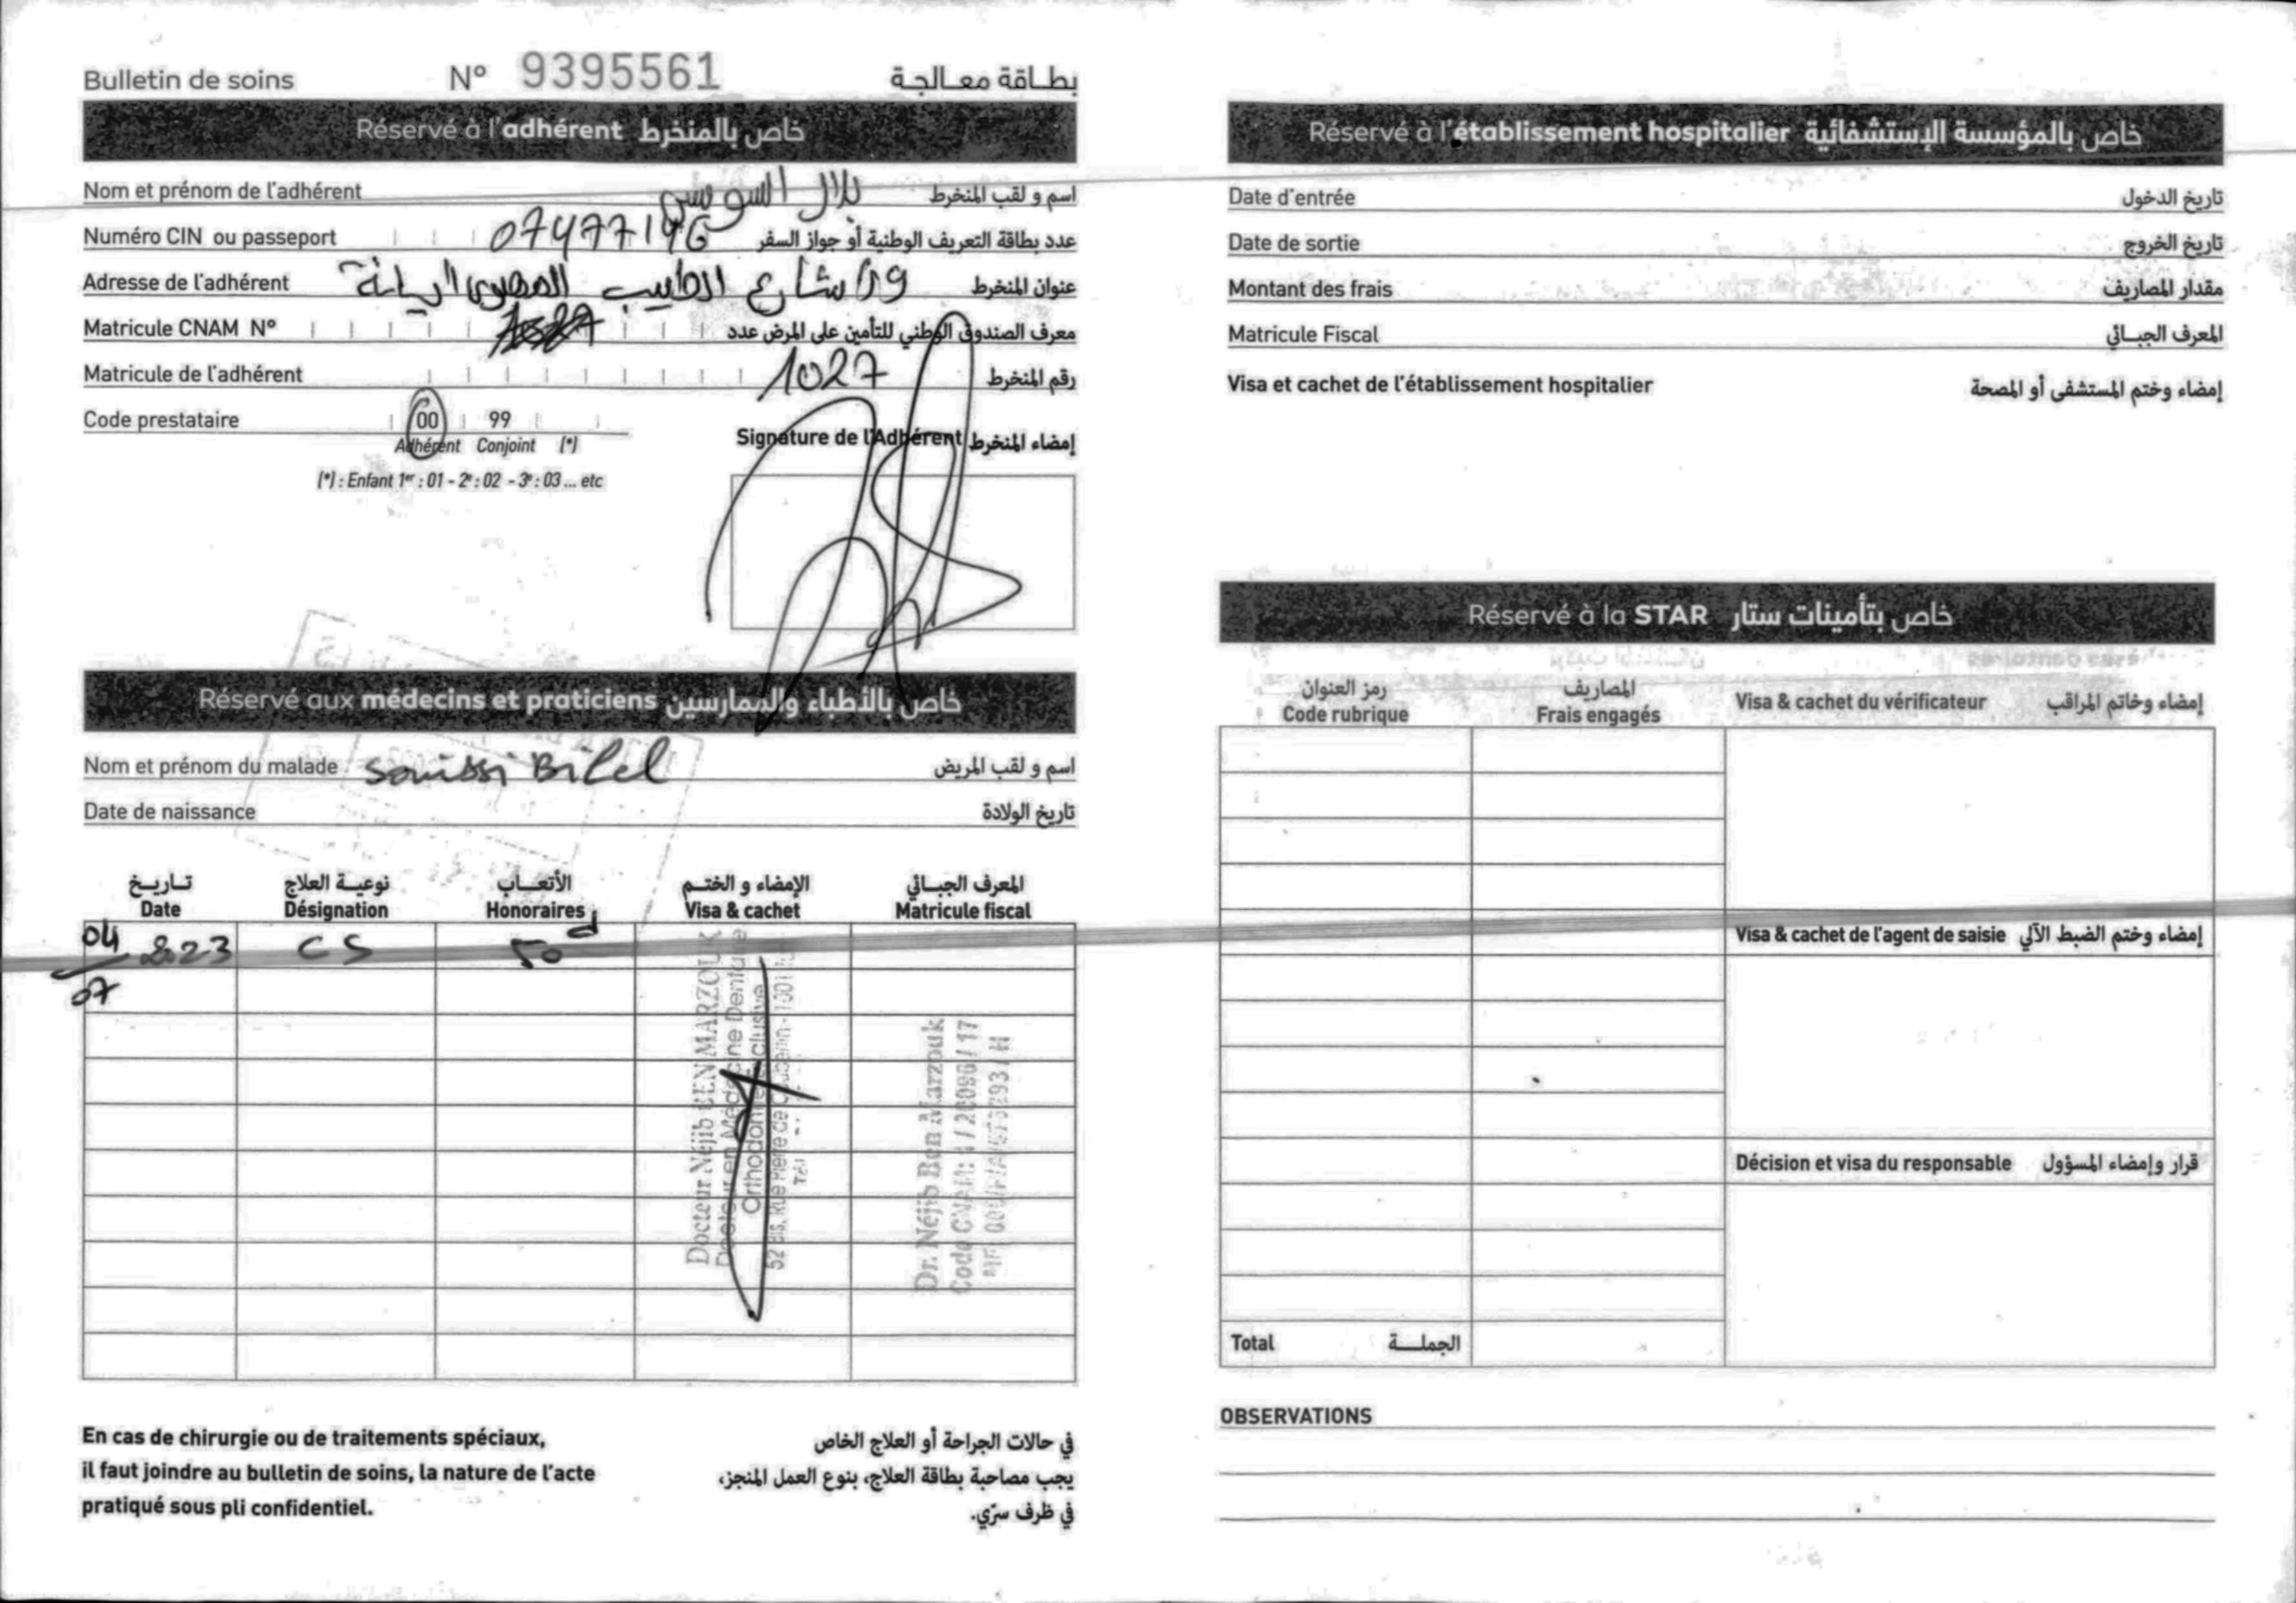 Bulletin de soins N° 9395561 بطاقة معالجة
Réservé à l'adhérent خاص بالمنخرط
Nom et prénom de l'adhérent بلال السويسي اسم و لقب المنخرط
Numéro CIN ou passeport 07477196 عدد بطاقة التعريف الوطنية أو جواز السفر
Adresse de l'adhérent شارع الطيب المهيري اريانة عنوان المنخرط
Matricule CNAM N° معرف الصندوق الوطني للتأمين على المرض عدد
Matricule de l'adhérent 1027 رقم المنخرط
Code prestataire 00 99
Adhérent Conjoint (*)
Signature de l'Adhérent إمضاء المنخرط
(*) : Enfant 1er : 01 - 2e : 02 - 3e : 03 ... etc
Réservé aux médecins et praticiens خاص بالأطباء والممارسين
Nom et prénom du malade Souissi Bilel اسم و لقب المريض
Date de naissance تاريخ الولادة
تاريخ نوعية العلاج الأتعاب الإمضاء و الختم المعرف الجبائي
Date Désignation Honoraires Visa & cachet Matricule fiscal
04/07 2023 CS 50d
Docteur Néjib BEN MARZOUK
Docteur en Médecine Dentaire
Orthodontie Exclusive
52 Bis, Rue Pierre de Coubertin - 1001
Tél
Dr. Néjib Ben Marzouk
Code CNAM:
En cas de chirurgie ou de traitements spéciaux,
il faut joindre au bulletin de soins, la nature de l'acte
pratiqué sous pli confidentiel.
في حالات الجراحة أو العلاج الخاص
يجب مصاحبة بطاقة العلاج، بنوع العمل المنجز،
في ظرف سرّي.
Réservé à l'établissement hospitalier خاص بالمؤسسة الإستشفائية
Date d'entrée تاريخ الدخول
Date de sortie تاريخ الخروج
Montant des frais مقدار المصاريف
Matricule Fiscal المعرف الجبائي
Visa et cachet de l'établissement hospitalier إمضاء وختم المستشفى أو المصحة
Réservé à la STAR خاص بتأمينات ستار
رمز العنوان المصاريف
Code rubrique Frais engagés Visa & cachet du vérificateur إمضاء وخاتم المراقب
Visa & cachet de l'agent de saisie إمضاء وختم الضبط الآلي
Décision et visa du responsable قرار وإمضاء المسؤول
Total الجملة
OBSERVATIONS